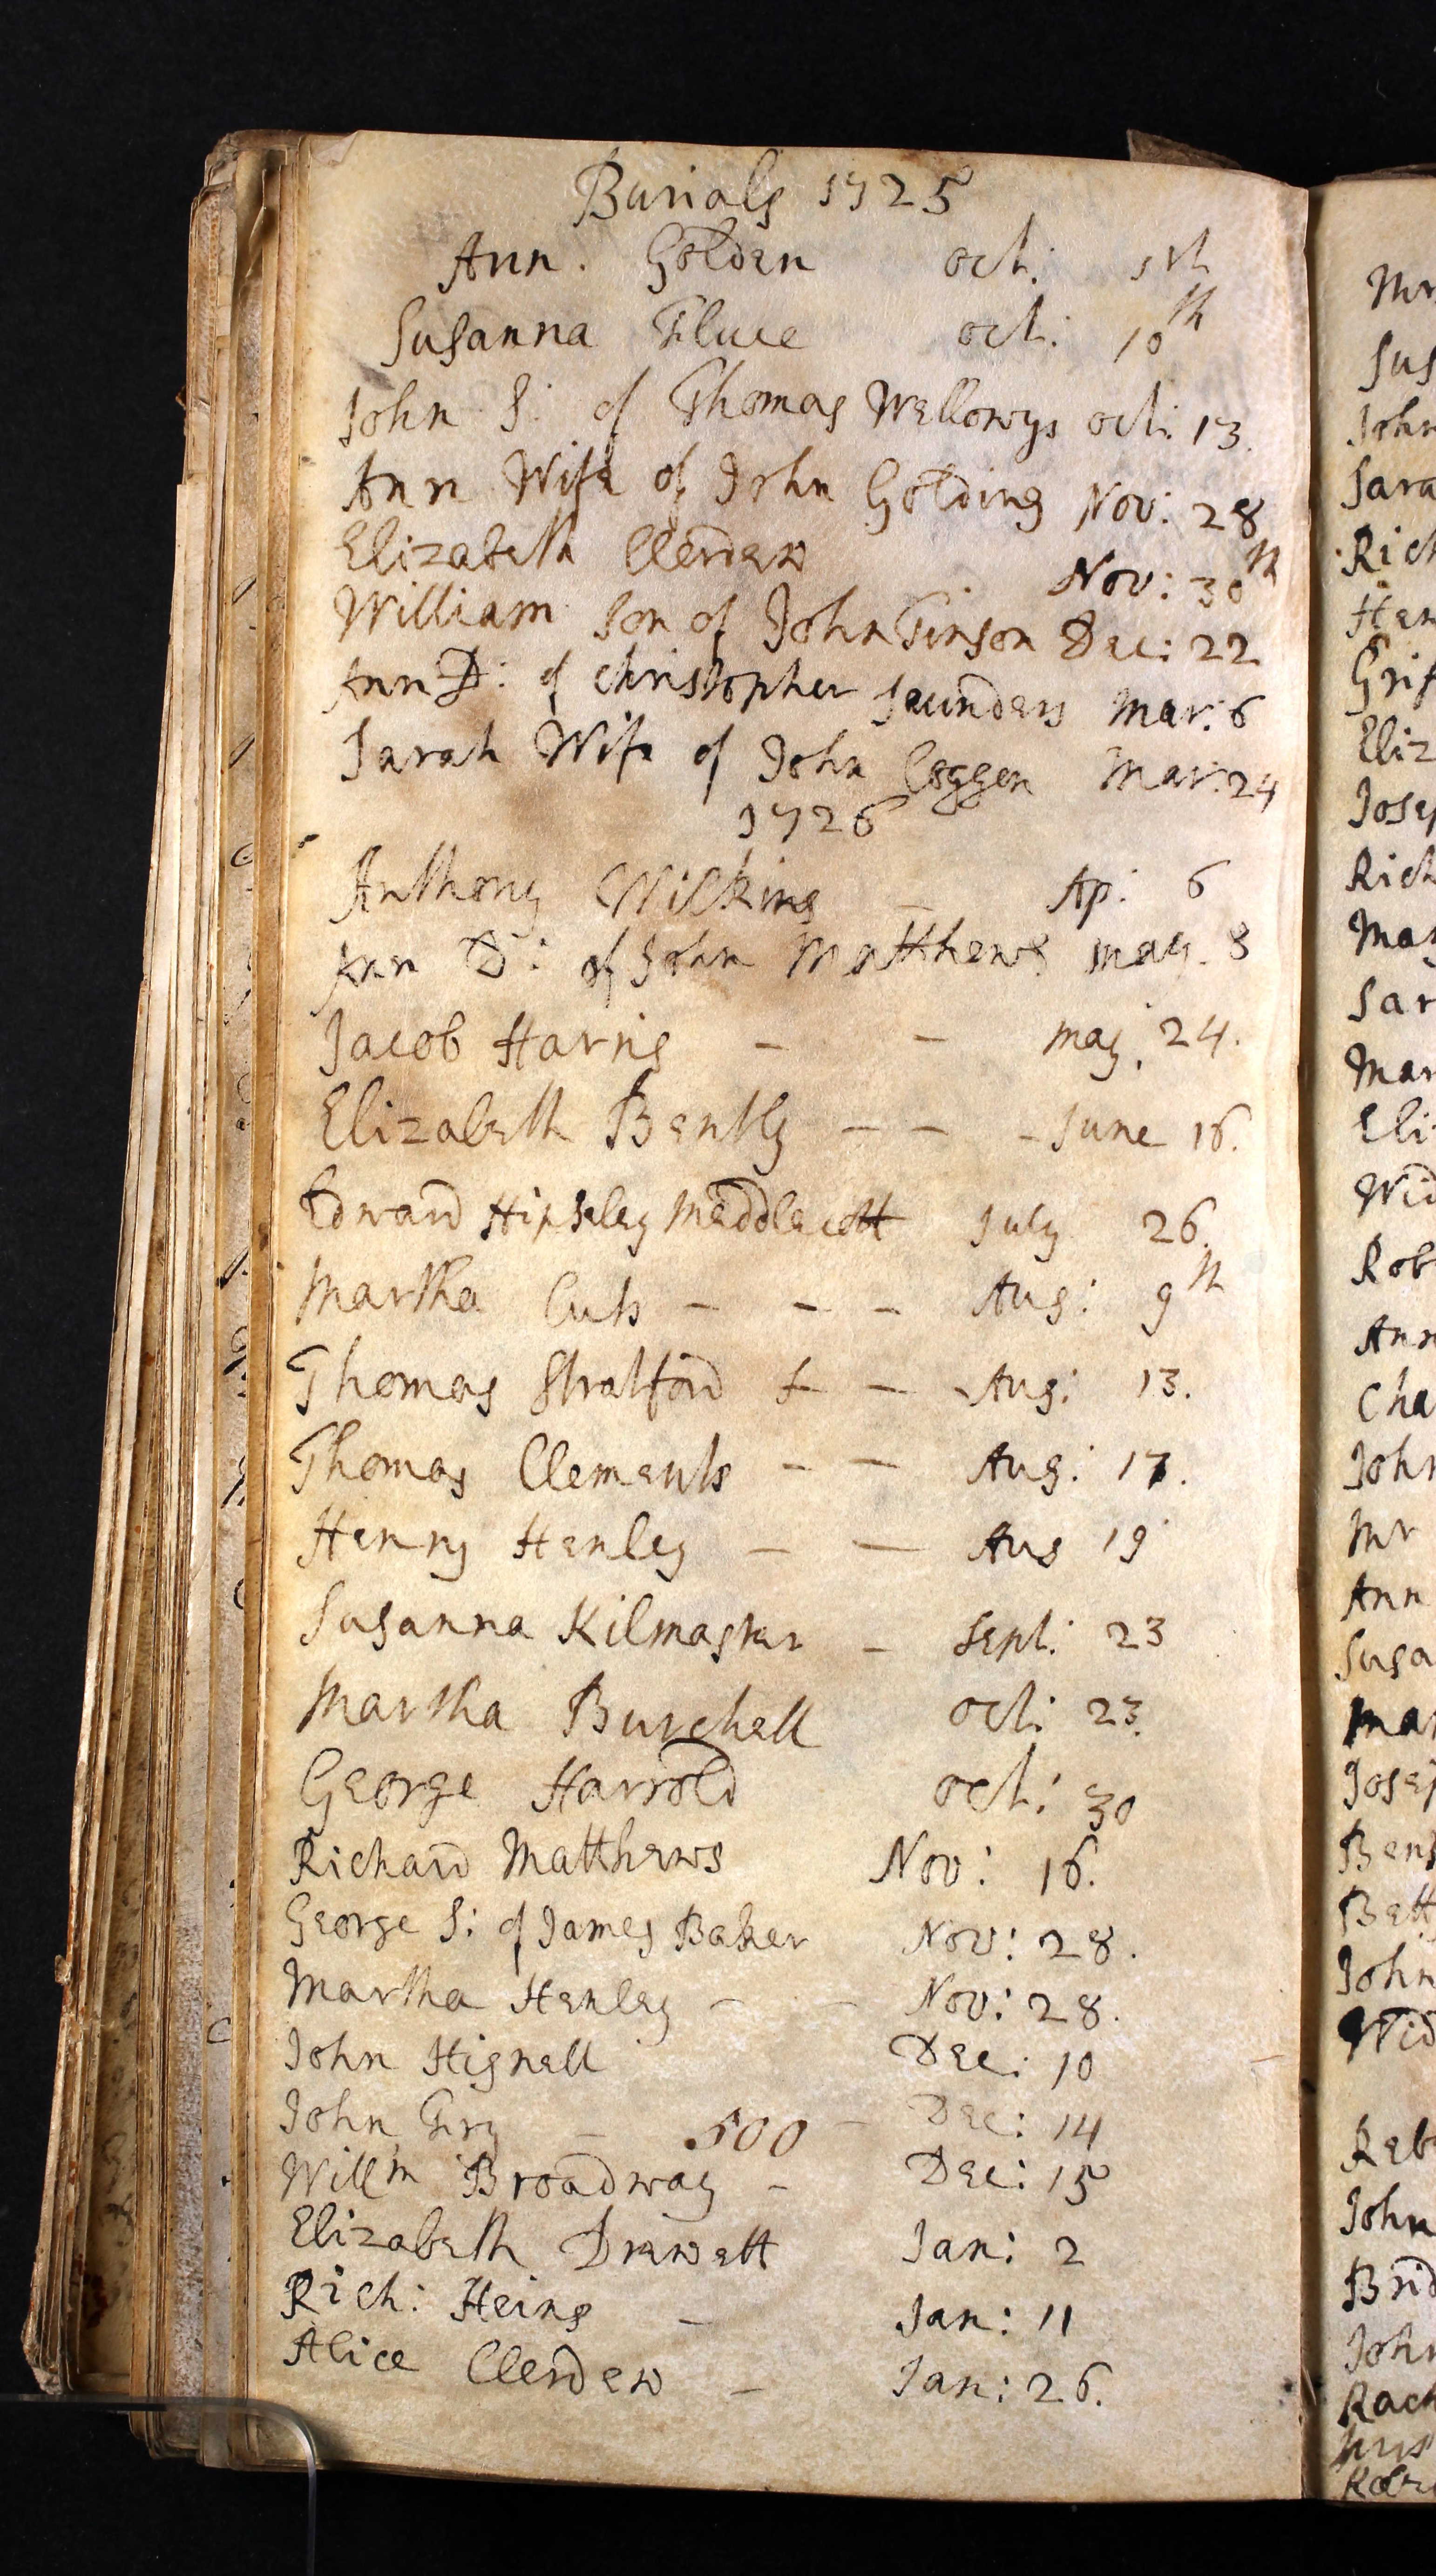 Burials 1725
Ann. Golden oct: 1st
Susanna Fluce oct: 10th
John S: of Thomas Wellowys oct: 13.
Ann Wife of John Golding Nov: 28
Elizabeth Clerdew Nov: 30th
William Son of John Tinson Dec: 22
Ann D: of Christopher Saunders Mar: 6
Sarah Wife of John Coggen Mar: 24
1726
Anthony Wilkins Ap: 6
Ann D: of John Matthews may. 3
Jacob Harris - - may. 24.
Elizabeth Bently - - - June 16.
Edward Hipseley Meddlecott July 26.
Martha Cuts - - - Aug: 9th
Thomas Stratford - - Aug: 13.
Thomas Clements - - Aug: 17.
Henry Henley - - Aug 19
Susanna Kilmaster - Sept: 23
Martha Burchell oct: 23.
George Harrold oct: 30
Richard Matthews Nov: 16.
George S: of James Baker Nov: 28.
Martha Henley - - Nov: 28.
John Hignell Dec: 10
John - 500 - Dec: 14
Willm Broadway - Dec: 15
Elizabeth Drewett Jan: 2
Rich: Heins - Jan: 11
Alice Clerdew - Jan: 26.